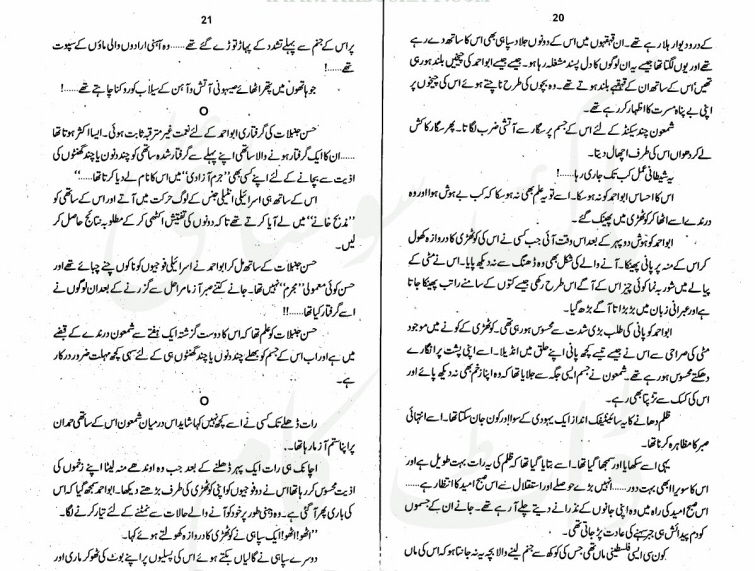 20
کے درو دیوار ہلا رہے تھے۔ ان قہقہوں میں اس کے دونوں جلاد سپاہی بھی اس کا ساتھ دے رہے
تھے اور یوں لگتا تھا جیسے یہ ان لوگوں کا دل پسند مشغلہ رہا ہو۔ جیسے جیسے ابو احمد کی چیخیں بلند ہو رہی
تھیں' اس کے ساتھ ان کے قہقہے بلند ہوتے تھے۔ وہ بچوں کی طرح ناچتے ہوئے اس کی چیخوں پر
اپنی بے پناہ مسرت کا اظہار کر رہے تھے۔
شمعون چند سیکنڈ کے لئے اس کے جسم پر سگار سے آتشی ضرب لگاتا۔ پھر سگار کا کش
لے کر دھواں اس کی طرف اچھال دیتا۔
یہ شیطانی عمل کب تک جاری رہا.....!
اس کا احساس ابو احمد کو نہ ہو سکا۔ اسے تو یہ علم بھی نہ ہو سکا کہ کب بے ہوش ہوا اور وہ
درندے اسے اٹھا کر کوٹھڑی میں پھینک گئے۔
ابو احمد کو ہوش دوپہر کے بعد اس وقت آئی جب کسی نے اس کی کوٹھڑی کا دروازہ کھول
کر اس کے منہ پر پانی پھینکا۔ آنے والے کی شکل بھی وہ ڈھنگ سے نہ دیکھ پایا۔ اس نے مٹی کے
پیالے میں شوربہ نما کوئی چیز اس کے آگے اس طرح رکھی جیسے کتوں کے سامنے راتب پھینکا جاتا
ہے اور عبرانی زبان میں بڑبڑاتا آگے بڑھ گیا۔
ابو احمد کو پانی کی طلب بڑی شدت سے محسوس ہو رہی تھی۔ کوٹھڑی کے کونے میں موجود
مٹی کی صراحی سے اس نے جیسے تیسے کچھ پانی اپنے حلق میں انڈیلا۔ اسے اپنی پشت پر انگارے
دھکتے محسوس ہو رہے تھے۔ شمعون نے جسم ایسی جگہ سے جلایا تھا کہ وہ اپنا زخم بھی نہ دیکھ پائے اور
اس کی کسک سے تڑپتا بھی رہے۔
ظلم ڈھانے کا یہ سائنٹیفک انداز ایک یہودی کے سوا اور کون جان سکتا تھا۔ اسے انتہائی
صبر کا مظاہرہ کرنا تھا۔
یہی اسے سکھایا اور سمجھایا گیا تھا۔ اسے بتایا گیا تھا کہ ظلم کی یہ رات بہت طویل ہے اور
اس کا سویرا ابھی بہت دور..... انہیں بڑے حوصلے اور استقلال سے اس صبح امید کا انتظار ہے.....
اس صبح امید کی راہ میں وہ اپنی جانوں کے نذرانے دیتے چلے آ رہے تھے۔ جانے ان کے جسموں
کو دم پیدائش ہی جبر سہنے کی عادت پڑ جاتی تھی۔
کون سی ایسی فلسطینی ماں تھی جس کی کوکھ سے جنم لینے والا بچہ یہ نہ جانتا ہو کہ اس کی ماں
21
پر اس کے جنم سے پہلے تشدد کے پہاڑ توڑے گئے تھے..... وہ آہنی ارادوں والی ماؤں کے سپوت
تھے.....!
جو ہاتھوں میں پتھر اٹھائے صیہونی آتش و آہن کے سیلاب کو روکنا چاہتے تھے.....!
O
حسن جنبلات کی گرفتاری ابو احمد کے لئے نعمت غیر مترقبہ ثابت ہوئی۔ ایسا اکثر ہوتا تھا
..... ان کا ایک گرفتار ہونے والا ساتھی اپنے پہلے سے گرفتار شدہ ساتھی کو چند دنوں یا چند گھنٹوں کی
اذیت سے بچانے کے لئے اپنے کسی بھی ''جرم آزادی'' میں اس کا نام لے دیا کرتا تھا.....''
اس کے ساتھ ہی اسرائیلی انٹیلی جنس کے لوگ حرکت میں آتے اور اس کے ساتھی کو
''مذبح خانے'' میں لے آیا کرتے تھے تاکہ دونوں کی تفتیش اکٹھی کر کے مطلوبہ نتائج حاصل کر
لیں۔
حسن جنبلات کے ساتھ مل کر ابو احمد نے اسرائیلی فوجیوں کو ناکوں چنے چبائے تھے اور
حسن کوئی معمولی ''مجرم'' نہیں تھا۔ جانے کتنے صبر آزما مراحل سے گزرنے کے بعد ان لوگوں نے
اسے گرفتار کیا تھا.....!!
حسن جنبلات کو علم تھا کہ اس کا دوست گزشتہ ایک ہفتے سے شمعون درندے کے قبضے
میں ہے اور اب اس کے جسم کو بھلے چند دنوں یا چند گھنٹوں ہی کے لئے سہی کچھ مہلت ضرور درکار
ہے۔
O
رات ڈھلے تک کسی نے اسے کچھ نہیں کہا شاید اس درمیان شمعون اس کے ساتھی حمدان
پر اپنا ستم آزما رہا تھا۔
اچانک ہی رات ایک پہر ڈھلنے کے بعد جب وہ اوندھے منہ لیٹا اپنے زخموں کی
اذیت محسوس کر رہا تھا اس نے دو فوجیوں کو اپنی کوٹھڑی کی طرف بڑھتے دیکھا۔ ابو احمد سمجھ گیا کہ اس
کی باری پھر آ گئی ہے۔ وہ ذہنی طور پر خود کو آنے والے حالات سے نمٹنے کے لئے تیار کرنے لگا۔
''اٹھو! اٹھو! ایک سپاہی نے کوٹھڑی کا دروازہ کھولتے ہوئے کہا۔
دوسرے سپاہی نے گالیاں بکتے ہوئے اس کی پسلیوں پر اپنے بوٹ کی ٹھوکر ماری اور